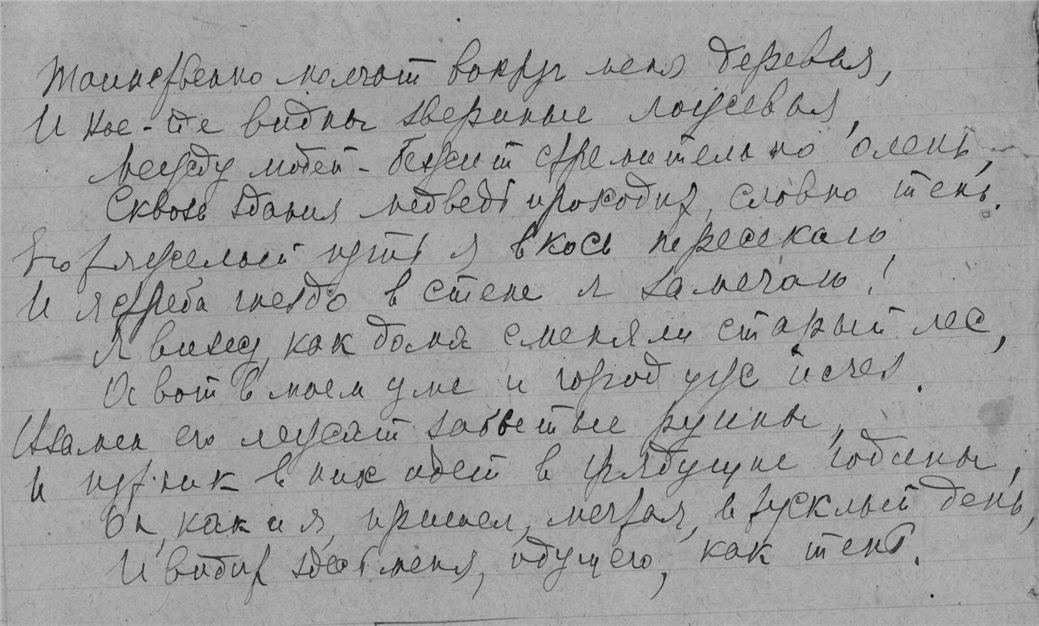 Таинственно молчат вокруг меня деревья,
И кое-где видны звериные кочевья,
Между людей - бежит стремительно олень,
Сквозь здания медведь проходит, словно тень.
Его тяжелый путь я вкось пересекаю
И ястреба гнездо в стене я замечаю!
Я вижу, как дома сменяли старый лес,
А вот в моем уме и город уж исчез.
Взамен его лежат забытые руины,
И путник в них идет в грядущие годины,
Он, как и я, пришел, мечтая, в тусклый день,
И видит здесь меня, идущего, как тень.